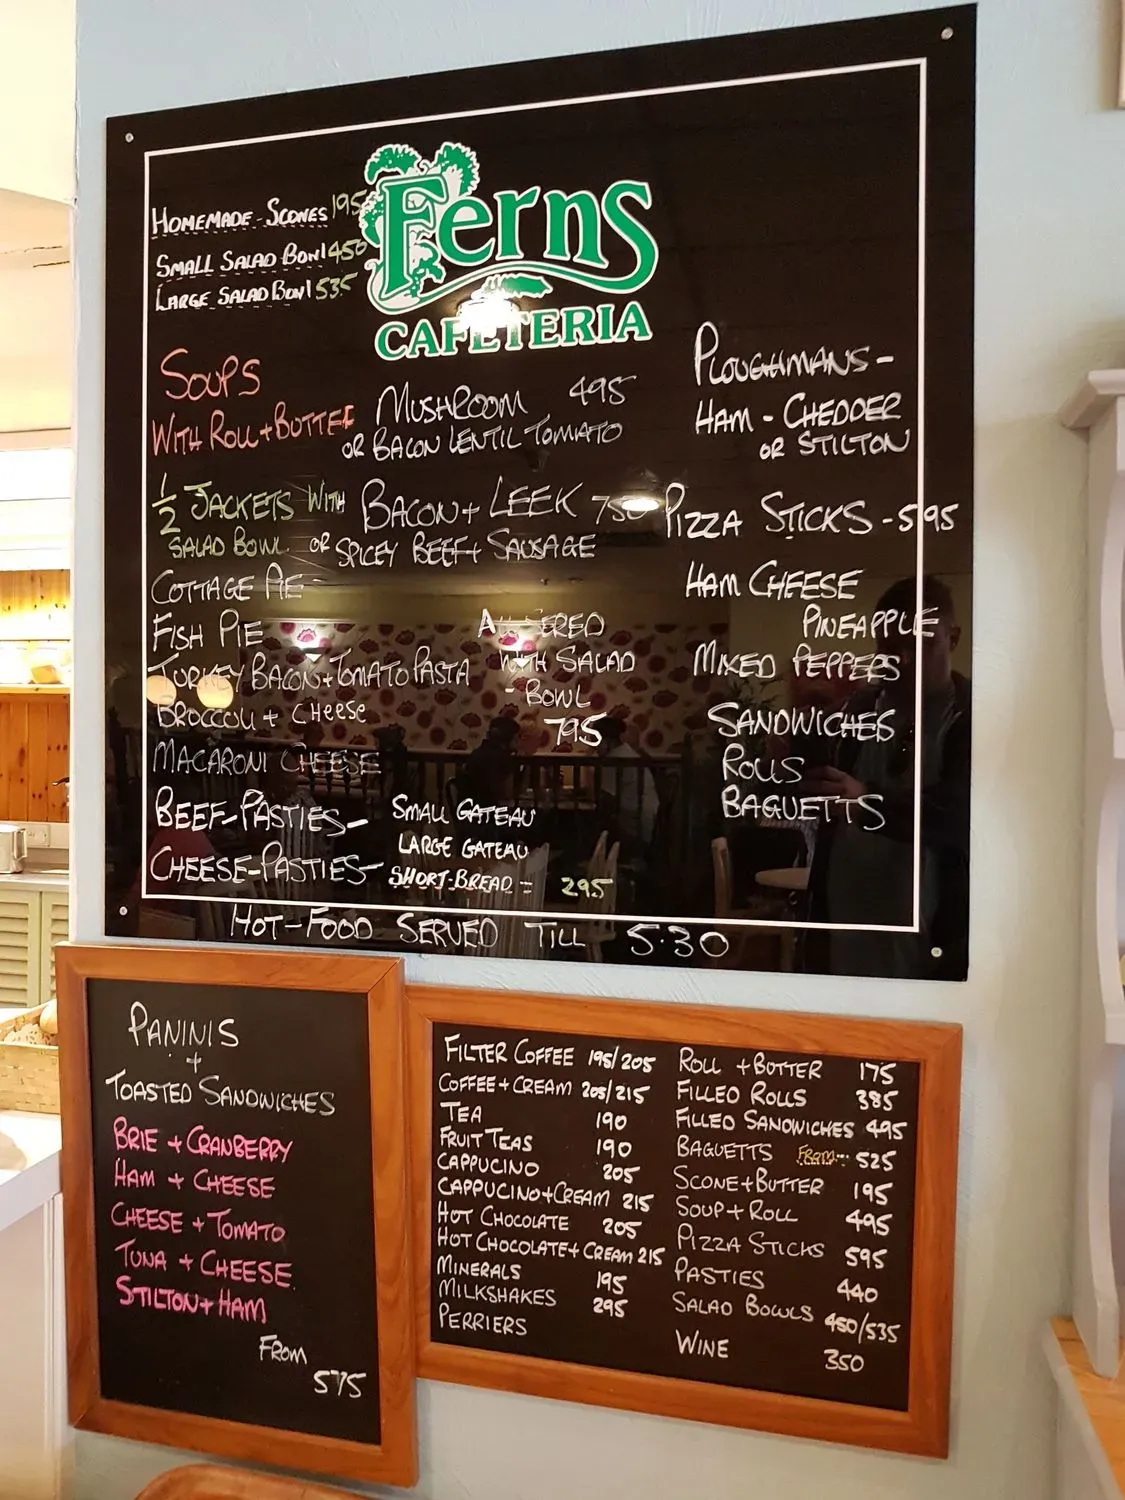 HOMEMADE-SCONES 195
SMALL SALAD BOWL 450
LARGE SALAD BOWL 535
Ferns
CAFETERIA
SOUPS
WITH ROLL + BUTTER
MUSHROOM 495
OR BACON LENTIL TOMATO
1/2 JACKETS WITH
SALAD BOWL
BACON + LEEK 750
OR SPICEY BEEF + SAUSAGE
COTTAGE PIE
FISH PIE
TURKEY BACON + TOMATO PASTA
BROCCOLI + CHEESE
MACARONI CHEESE
WITH SALAD
- BOWL
795
BEEF-PASTIES-
CHEESE-PASTIES-
SMALL GATEAU
LARGE GATEAU
SHORT-BREAD = 295
PLOUGHMANS -
HAM - CHEDDER
OR STILTON
PIZZA STICKS - 595
HAM CHEESE
PINEAPPLE
MIXED PEPPERS
SANDWICHES
ROLLS
BAGUETTS
HOT-FOOD SERVED TILL 5.30
PANINIS
+
TOASTED SANDWICHES
BRIE + CRANBERRY
HAM + CHEESE
CHEESE + TOMATO
TUNA + CHEESE
STILTON + HAM
FROM
575
FILTER COFFEE 195/205
COFFEE + CREAM 205/215
TEA 190
FRUIT TEAS 190
CAPPUCINO 205
CAPPUCINO + CREAM 215
HOT CHOCOLATE 205
HOT CHOCOLATE + CREAM 215
MINERALS 195
MILKSHAKES 295
PERRIERS
ROLL + BUTTER 175
FILLED ROLLS 385
FILLED SANDWICHES 495
BAGUETTS FROM 525
SCONE + BUTTER 195
SOUP + ROLL 495
PIZZA STICKS 595
PASTIES 440
SALAD BOWLS 450/535
WINE 350